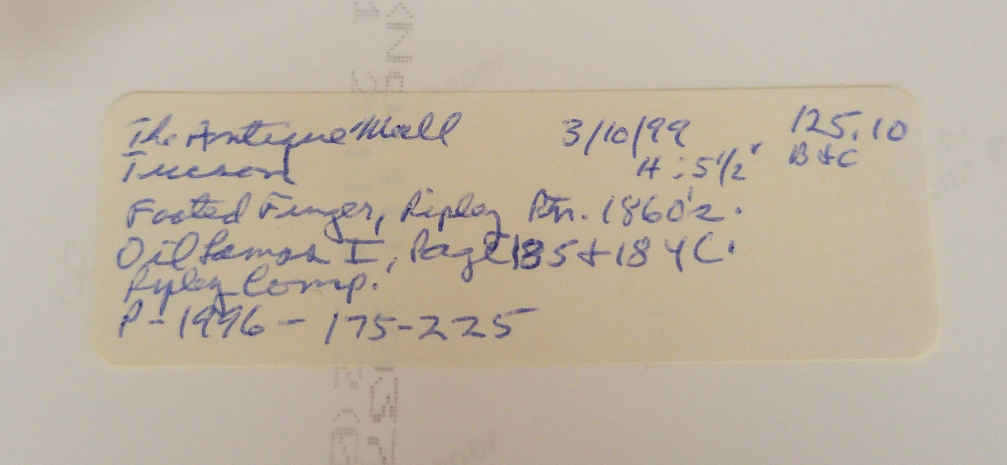 The Antique Mall 3/10/99 125.10
Tucson H: 5 1/2" B+C
Footed Finger, Ripley Ptn. 1860's.
Oil Lamps I, Page 185 + 184 C.
Ripley Comp.
P-1996-175-225